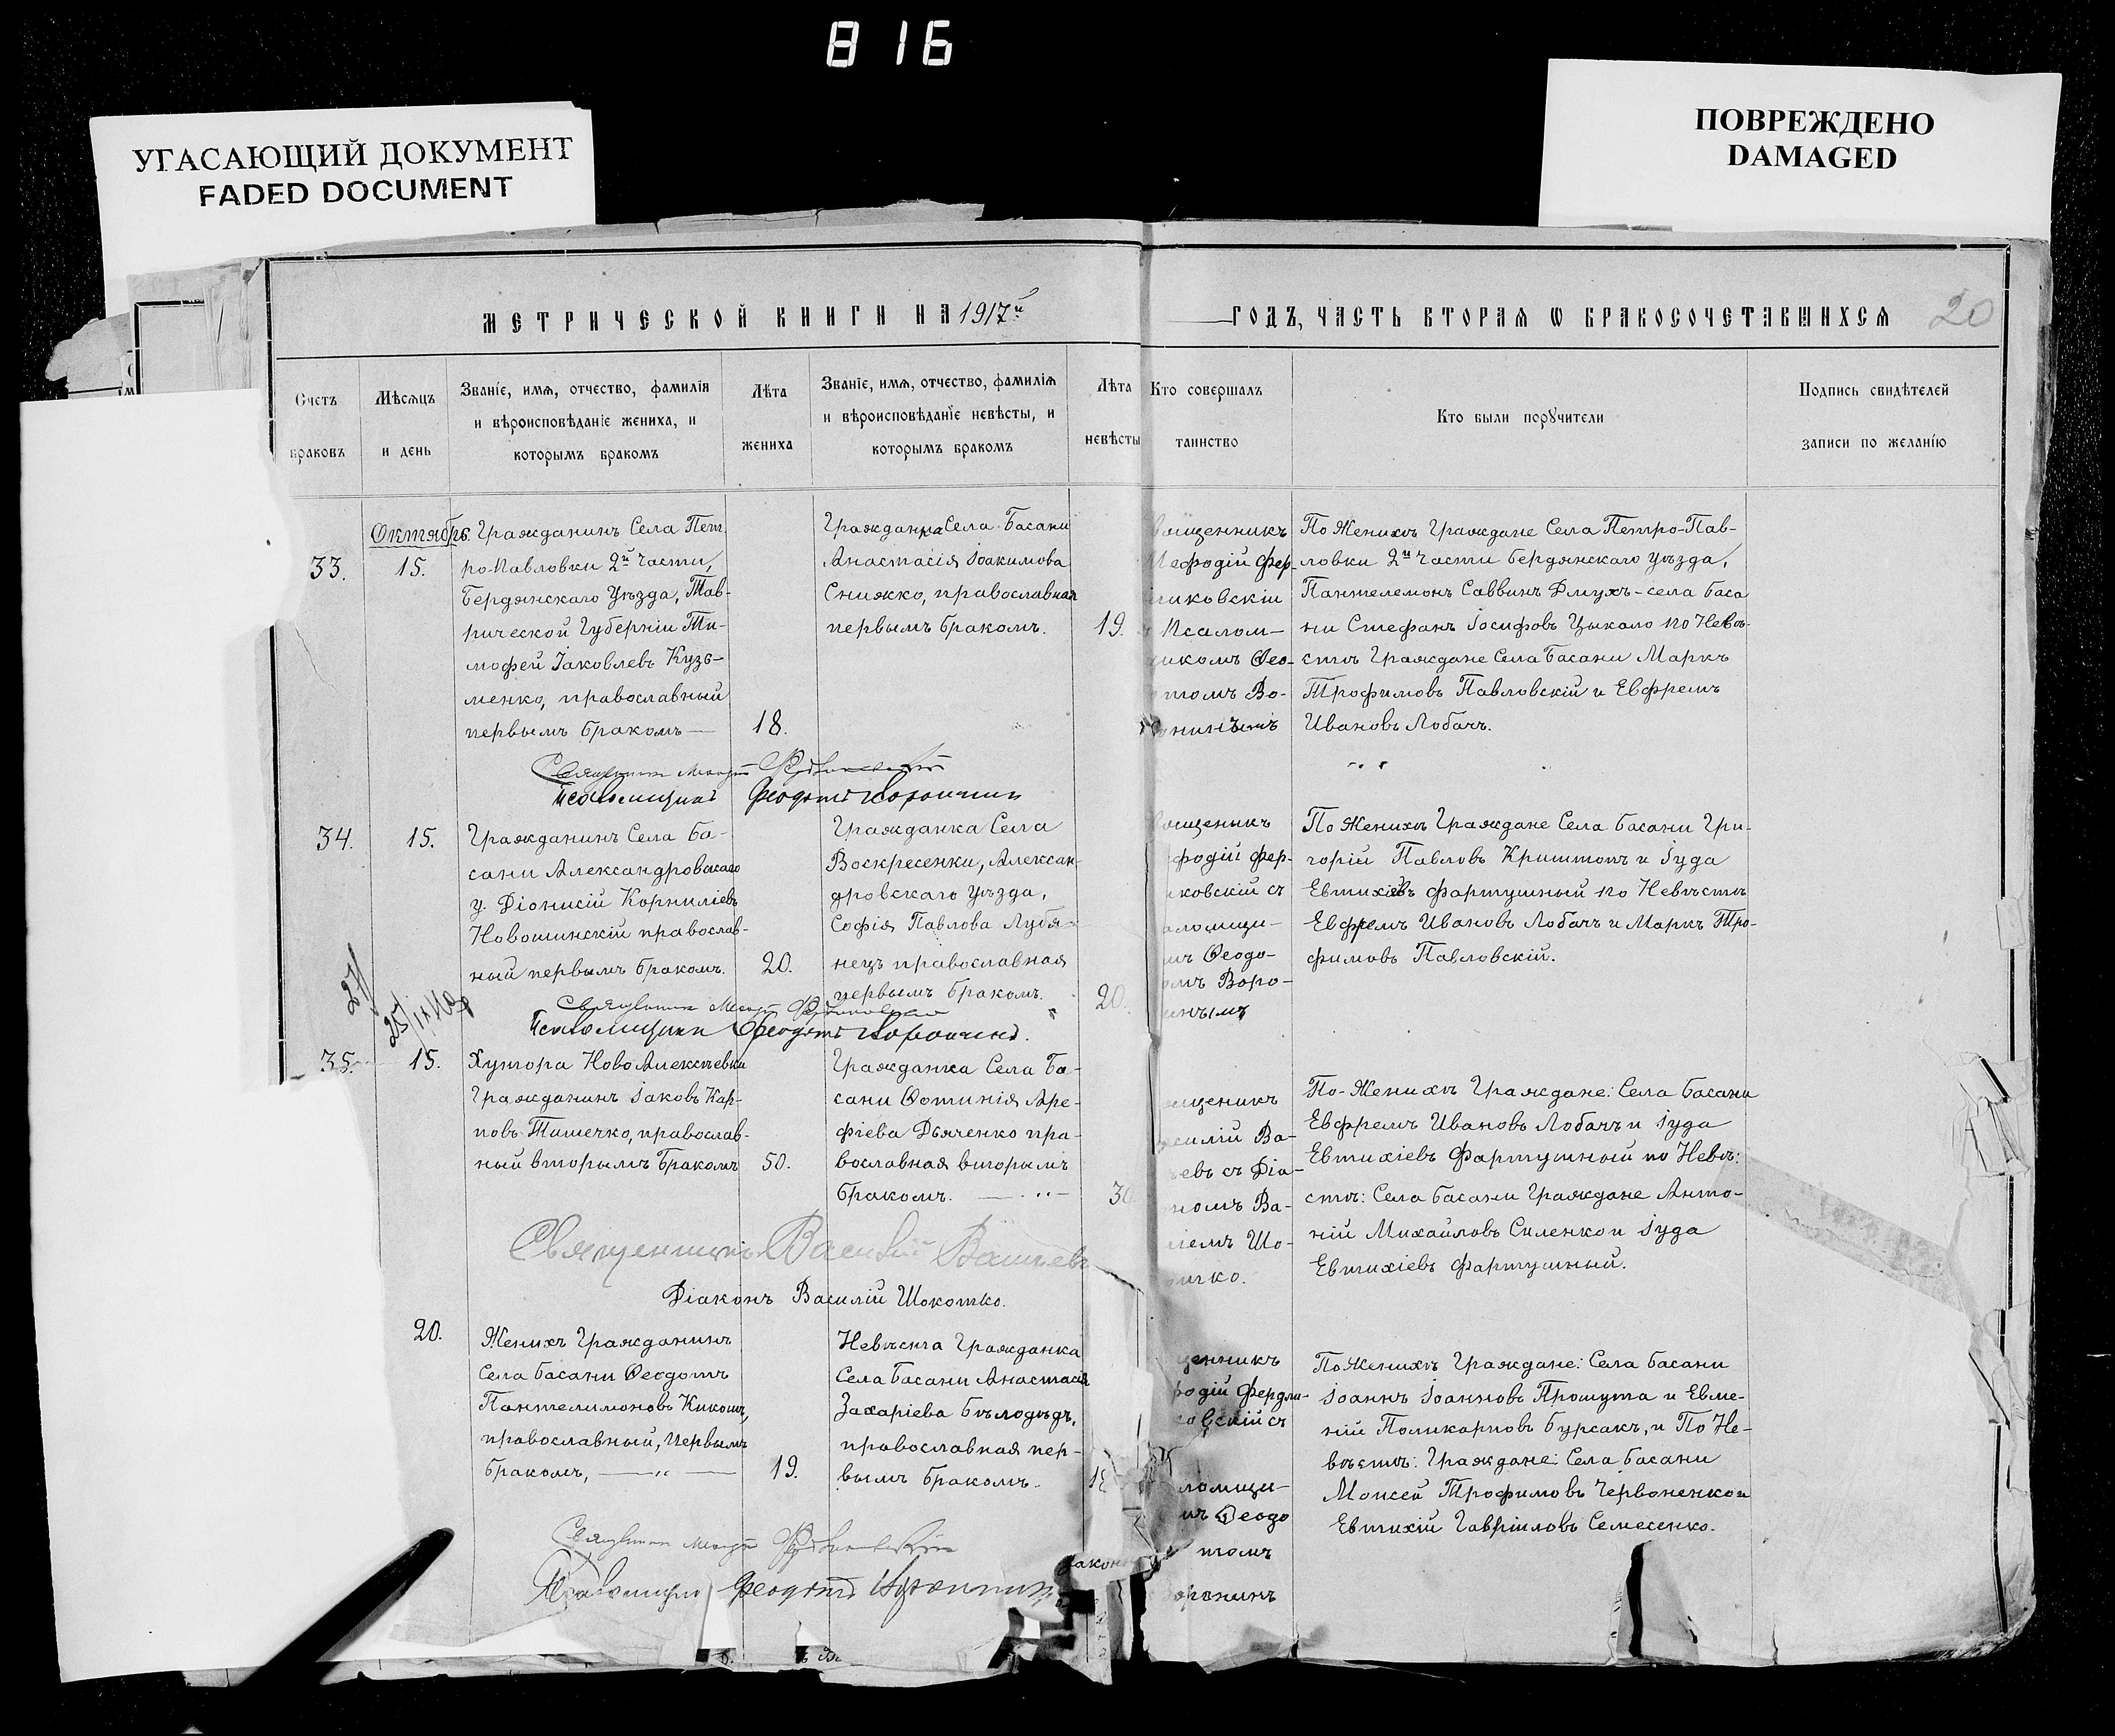 816
УГАСАЮЩИЙ ДОКУМЕНТ
FADED DOCUMENT
ПОВРЕЖДЕНО
DAMAGED
МЕТРИЧЕСКОЙ КНИГИ НА 1917й
ГОДЪ, ЧАСТЬ ВТОРАЯ Ѡ БРАКОСОЧЕТАВШИХСЯ
20
Счетъ
браковъ
Мѣсяцъ
и день
Званіе, имя, отчество, фамилія
и вѣроисповѣданіе жениха, и
которымъ бракомъ
Лѣта
жениха
Званіе, имя, отчество, фамилія
и вѣроисповѣданіе невѣсты, и
которымъ бракомъ
Лѣта
невѣсты
Кто совершалъ
таинство
Кто были порꙋчители
Подпись свидѣтелей
записи по желанію
33.
Октябрь
15.
Гражданинъ Села Пет
ро-Павловки 2й Части,
Бердянскаго Уѣзда, Тав-
рической Губерніи Ти-
мофей Іаковлевъ Кузь-
менко, православный
первымъ бракомъ —
18.
Гражданка Села Басани
Анастасія Іоакимова
Снижко, православная
первымъ бракомъ.
19.
ященникъ
Мефодій Фер-
ликовскій
Псалом-
икомъ Ѳео-
томъ Во-
нинымъ
По Женихѣ Граждане Села Петро-Пав-
ловки 2й Части Бердянскаго уѣзда,
Пантелемонъ Саввинъ Дмухъ - села Баса
ни Стефанъ Іосифовъ Цыкало по Невѣ-
стѣ Граждане Села Басани Маркъ
Трофимовъ Павловскій и Евфремъ
Ивановъ Лобачъ.
Псаломщикъ Феодотъ Воронинъ
34.
15.
Гражданинъ Села Ба-
сани Александровскаго
у. Діонисій Корниліевъ
Новошинскій православ-
ный первымъ бракомъ.
20.
Гражданка Села
Воскресенки, Алексан-
дровскаго уѣзда,
Софія Павлова Лубя-
нецъ православная
первымъ бракомъ.
20.
ященыкъ
фодій Фер-
иковскій съ
аломщи-
мъ Ѳеодо-
омъ Воро-
нинымъ
По Женихѣ Граждане Села Басани Гри-
горій Павловъ Криштопъ и Іуда
Евтихіевъ Фартушный по Невѣстѣ
Евфремъ Ивановъ Лобачъ и Маркъ Тро-
фимовъ Павловскій.
Псаломщикъ Феодотъ Воронинъ.
35.
15.
Хутора НовоАлексѣевки
Гражданинъ Іаковъ Кар-
повъ Тишечко, православ-
ный вторымъ Бракомъ
50.
Гражданка Села Ба-
сани Ѳотинія Аре-
фіева Дьяченко пра-
вославная вторымъ
бракомъ.
ященикъ
асилій Ва-
ьевъ съ Діа-
номъ Ва-
ліемъ Шо-
отко.
По-Женихѣ Граждане: Села Басани
Евфремъ Ивановъ Лобачъ и Іуда
Евтихіевъ Фартушный по Невѣ:
стѣ: Села Басани Граждане Анто-
ній Михайловъ Силенко и Іуда
Евтихіевъ Фартушный.
Священникъ Василій
Діаконъ Василій Шокотко.
20.
Женихъ Гражданинъ
Села Басани Ѳеодотъ
Пантелимоновъ Кикотъ,
православный, Первымъ
бракомъ,
19.
Невѣста Гражданка
Села Басани Анастасія
Захаріева Бѣлодѣдъ,
православная пер-
вымъ бракомъ.
щенникъ
фодій Фердли-
овскій съ
ломщи-
мъ Ѳеодо
томъ
оронинъ
По Женихѣ Граждане: Села Басани
Іоаннъ Іоанновъ Прошута и Евме-
ній Поликарповъ Бурсакъ, и По Не-
вѣстѣ: Граждане: Села Басани
Моисей Трофимовъ Червоненко и
Евтихій Гавріиловъ Семесенко.